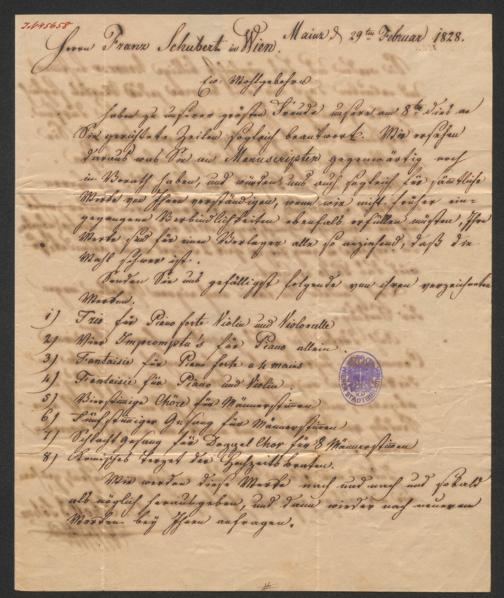 J.N. 45658
Mainz d 29ten Februar 1828.
Herrn Franz Schubert in Wien.
Ew. Wohlgebohrn
haben zu unserer großen Freude unsere am 8ten dieß an
Sie gerichtete Zeilen sogleich beantwortet. Wir ersehen
daraus was Sie an Manuscripten gegenwärtig noch
in Vorath haben, und würden uns auch sogleich für sämtliche
Werke mit Ihnen verständigen, wenn wir nicht früher ein-
gegangene Verbindlichkeiten ebenfalls erfüllen müßten, Ihre
Werke sind für einen Verleger alle so anziehend, daß die
Wahl schwer ist.
Senden Sie uns gefälligst folgende von ihren verzeichneten
Werken.
1) Trio für Piano forte Violin und Violoncelle
2) Vier Impromptu's für Piano allein.
3) Fantaisie für Piano forte a 4 mains
4) Fantaisie für Piano und Violin.
5) Vierstimige Chöre für Männerstimen
6) Fünfstimiger Gesang für Männerstimen
7) Schlachtgesang für Doppel Chor für 8 Männerstimen
8) Komisches Terzet der Hochzeitsbraten.
Wir werden diese Werke nach und nach und sobald
als möglich herausgeben, und dann wieder nach neueren
Werken bey Ihnen anfragen.